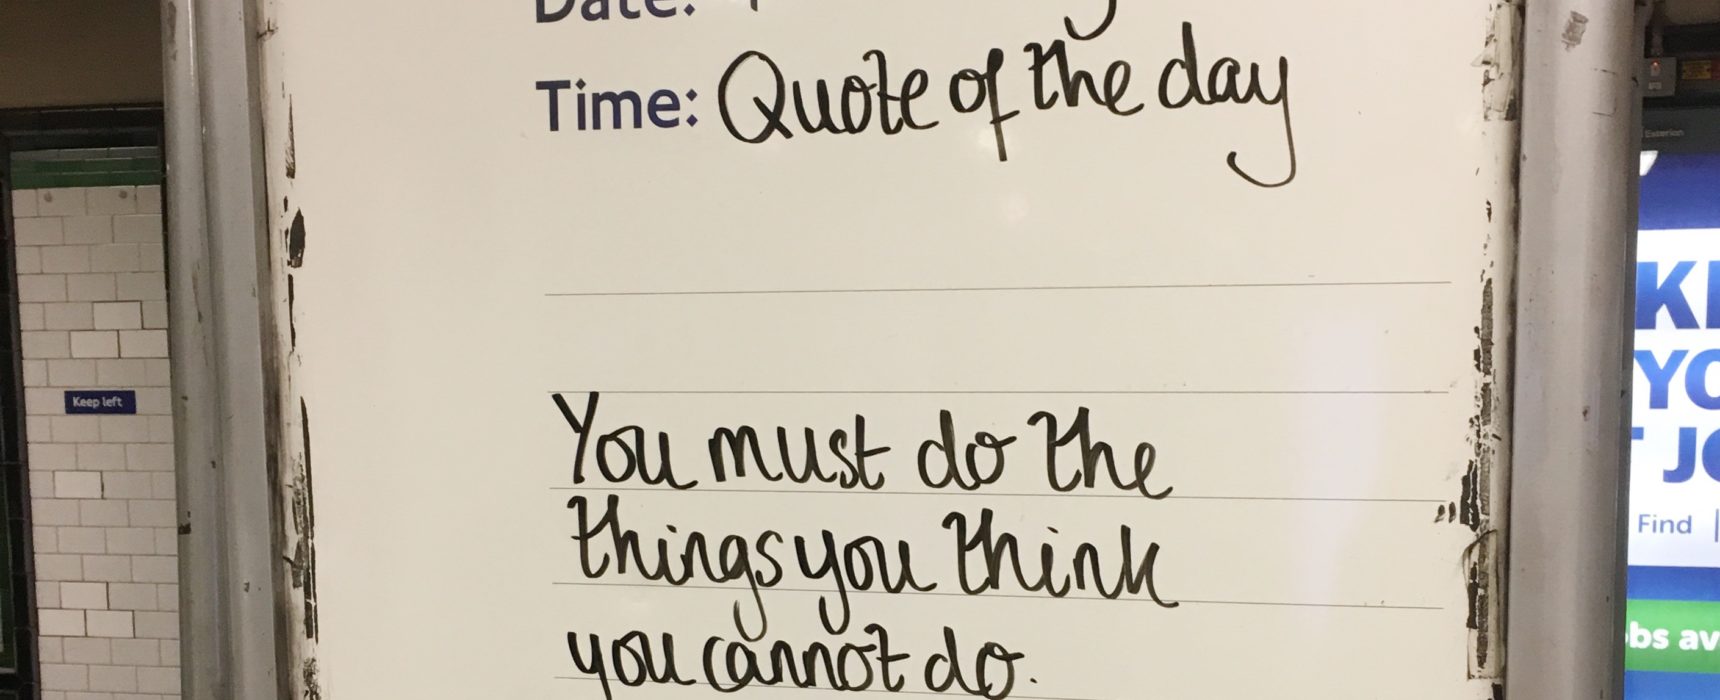 Date:
Time: Quote of the day
You must do the
things you think
you cannot do.
Keep left
Find